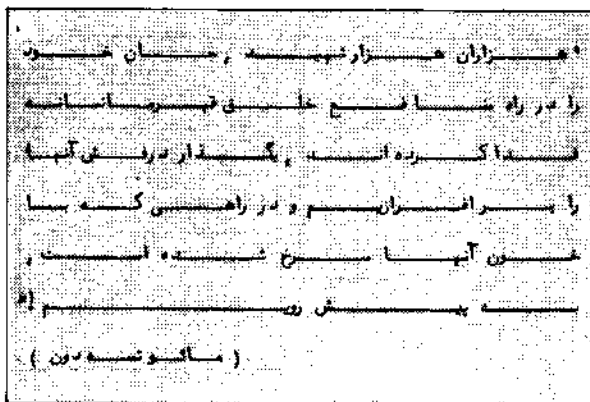 "هزاران هزار شهید ، جان خود
را در راه منافع خلق قهرمانانه
فدا کرده اند ، بگذار درفش آنها
را بر افرازیم و در راهی که با
خون آنها سرخ شده است ،
به پیش رویم !"
( مائو تسه دون )